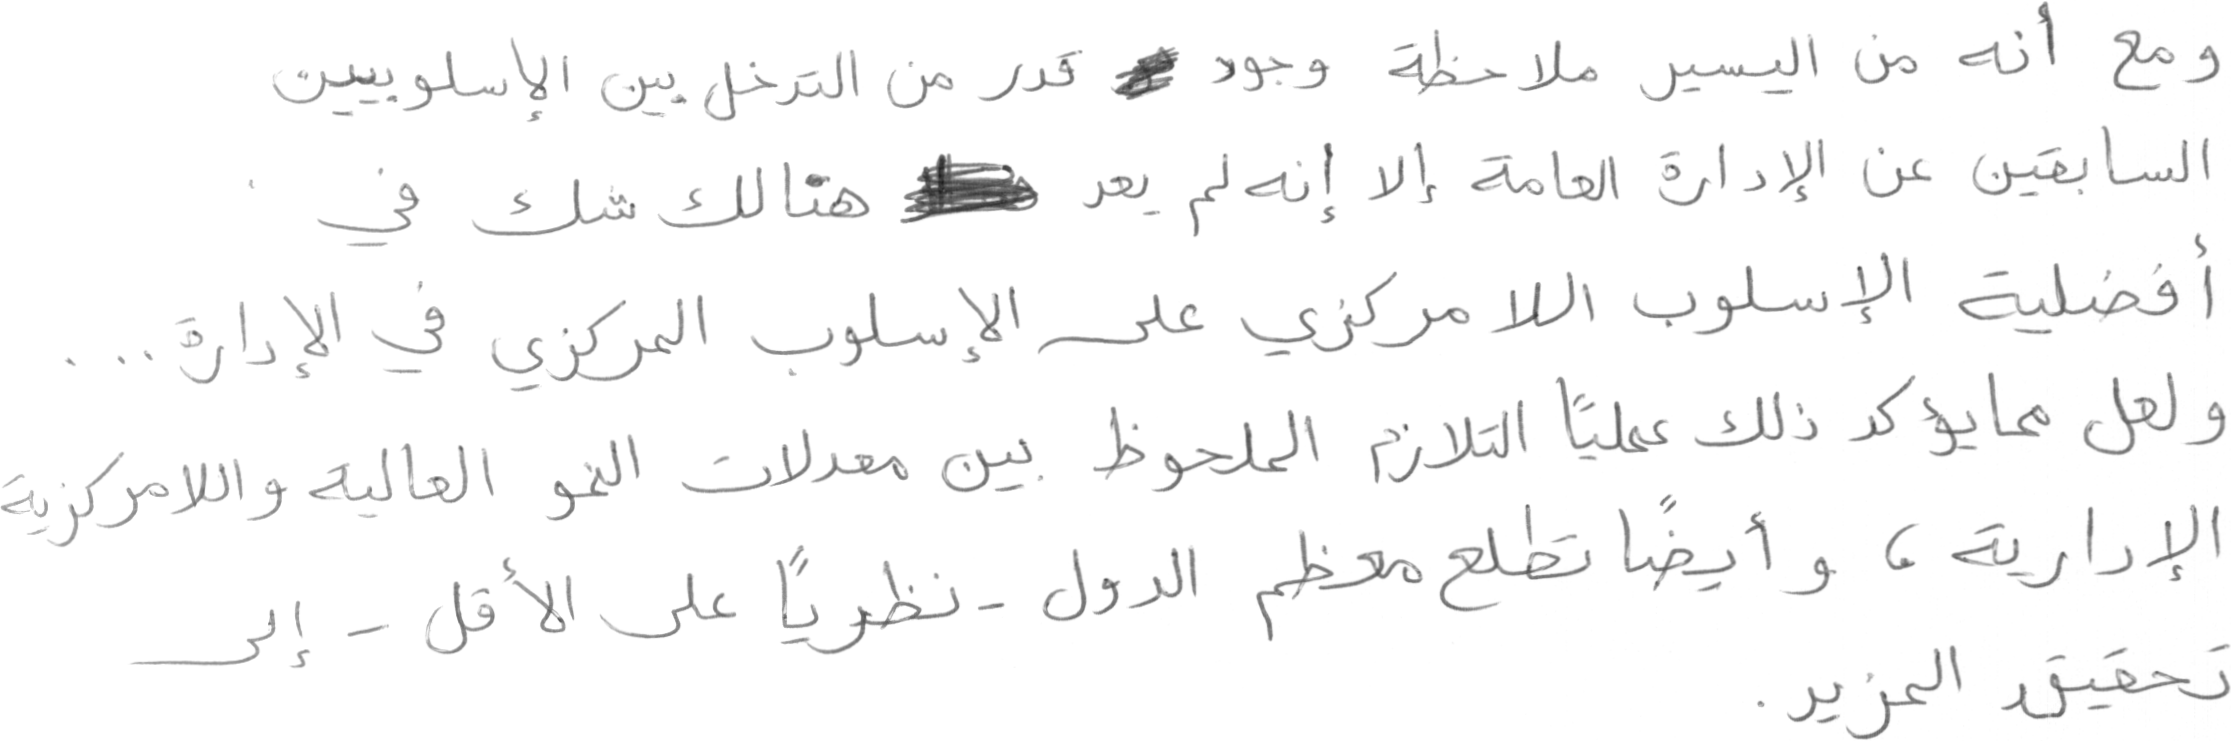 ومع أنه من اليسير ملاحظة وجود قدر من التدخل بين الإسلوبيين
السابقين عن الإدارة العامة إلا إنه لم يعد هنالك شك في
أفضلية الإسلوب اللامركزي على الإسلوب المركزي في الإدارة ...
ولعل مما يؤكد ذلك عمليًا التلازم الملحوظ بين معدلات النمو العالية واللامركزية
الإدارية ، وأيضًا تطلع معظم الدول - نظريًا على الأقل - إلى
تحقيق المزيد .